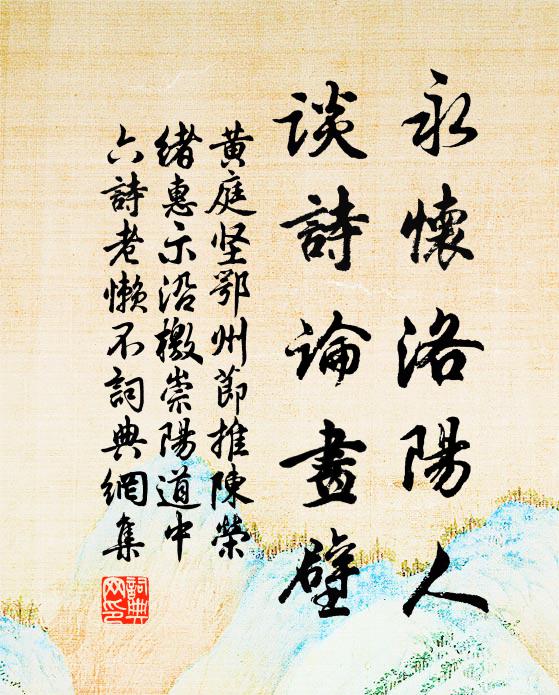 永懷洛陽人
談詩論畫壁
黃庭坚鄂州節推陳榮
緒惠示沿檄崇陽道中
六詩老懶不詞典網集
詞典
网印